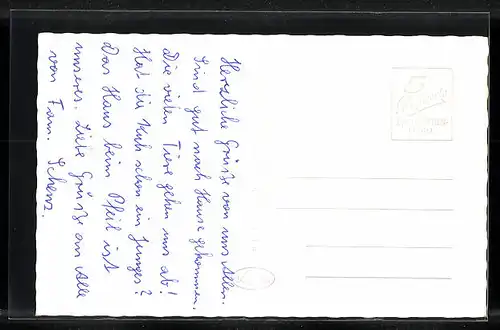 Herzliche Grüße von uns Allen.
Sind gut nach Hause gekommen.
Die vielen Tiere gehen uns ab!
Hat die Kuh schon ein Junges?
Das Haus beim Pfeil ist
unseres. Liebe Grüße an Alle
von Fam. Schenz.
5